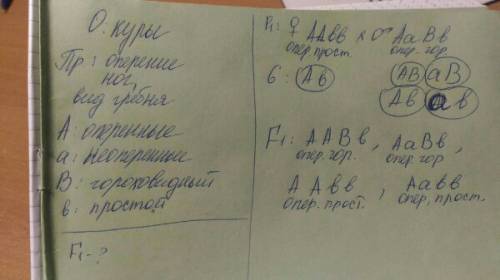 О. куры
Пр: оперение
ног,
вид гребня
А: оперенные
а: неоперенные
В: гороховидный
в: простой
F₁ - ?
P₁: ♀ ААвв х ♂ АаВв
опер. прост. опер. гор.
G: Ав АВ аВ
Ав ав
F₁: ААВв, АаВв,
опер. гор. опер. гор
ААвв, Аавв
опер. прост. опер. прост.